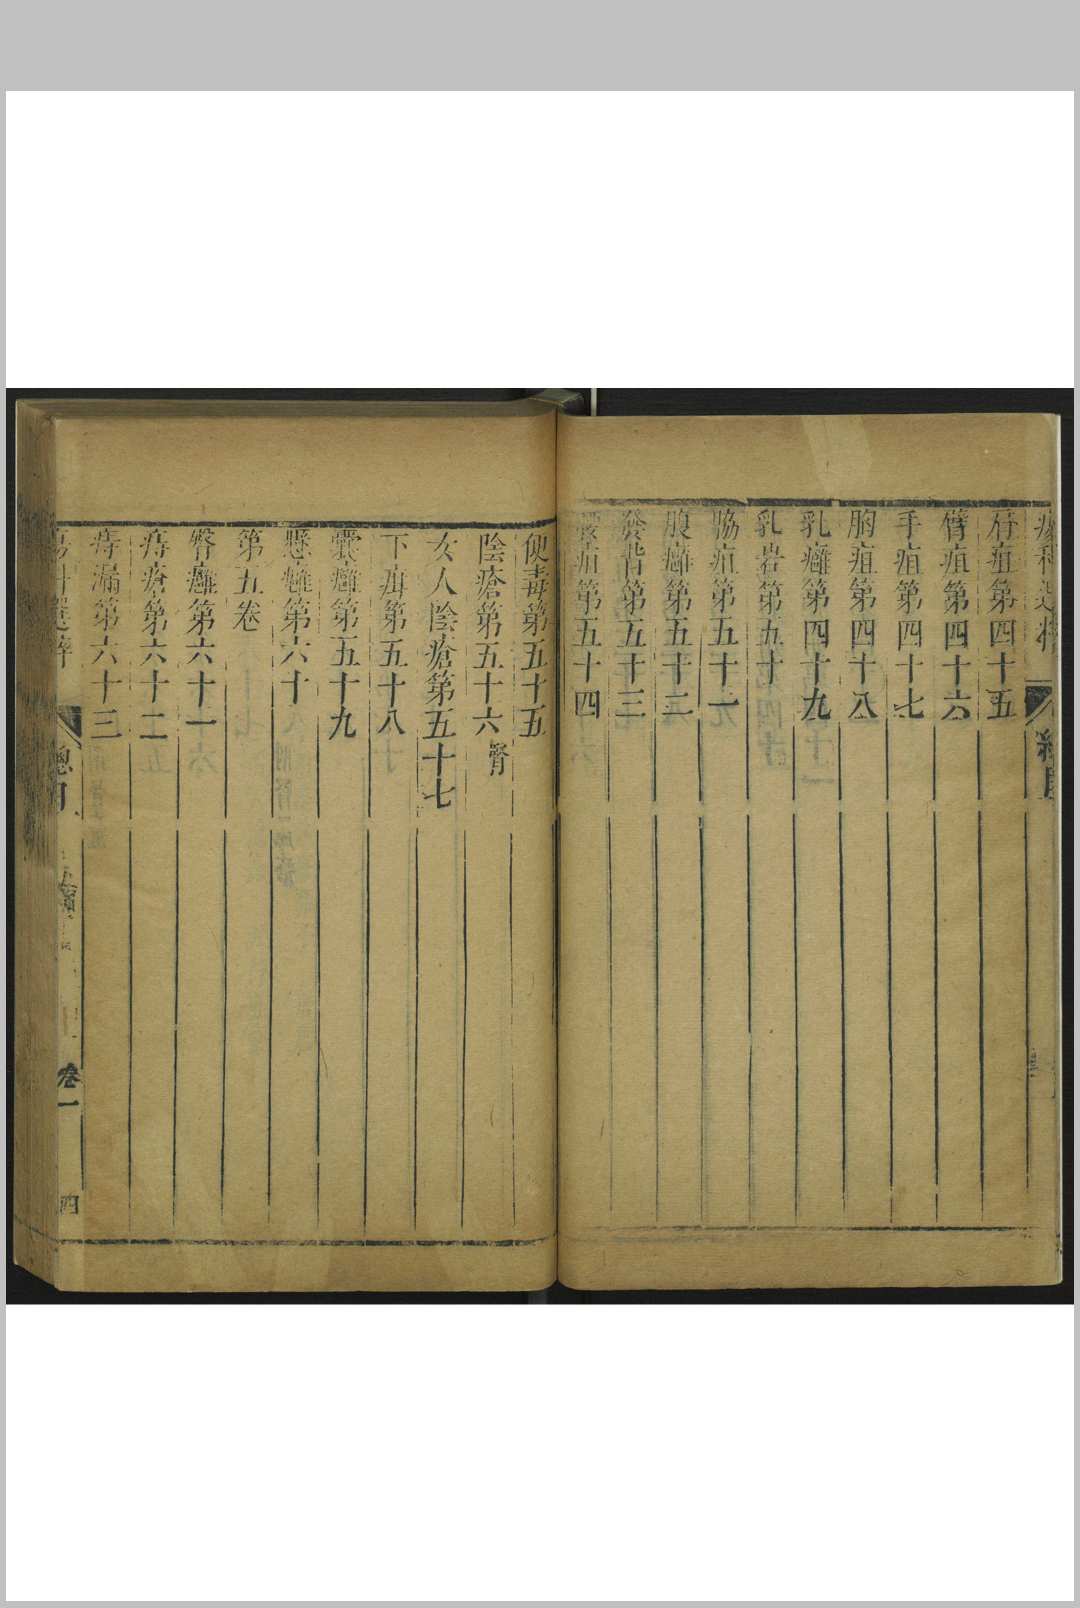 痔疽第四十五
臂疽第四十六
手疽第四十七
胸疽第四十八
乳癰第四十九
乳岩第五十
脇疽第五十一
腹癰第五十二
發背第五十三
第五十四
便毒第五十五
陰瘡第五十六 腎
女人陰瘡第五十七
下疳第五十八
囊癰第五十九
懸癰第六十
第五卷
臀癰第六十一
痔瘡第六十二
痔漏第六十三
總目
卷一
四